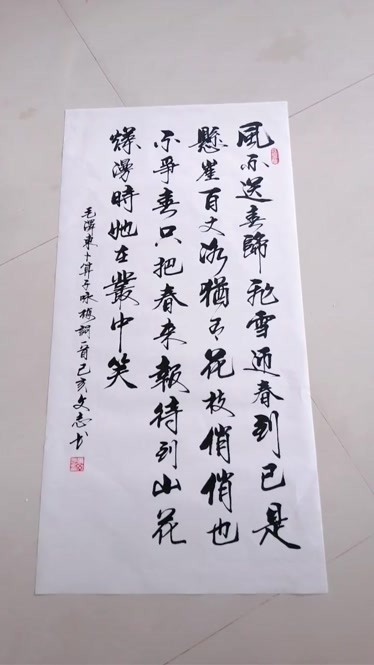 風雨送春歸飛雪迎春到已是
懸崖百丈冰猶有花枝俏俏也
不爭春只把春來報待到山花
爛漫時她在叢中笑
毛澤東卜算子咏梅詞一首己亥文志书